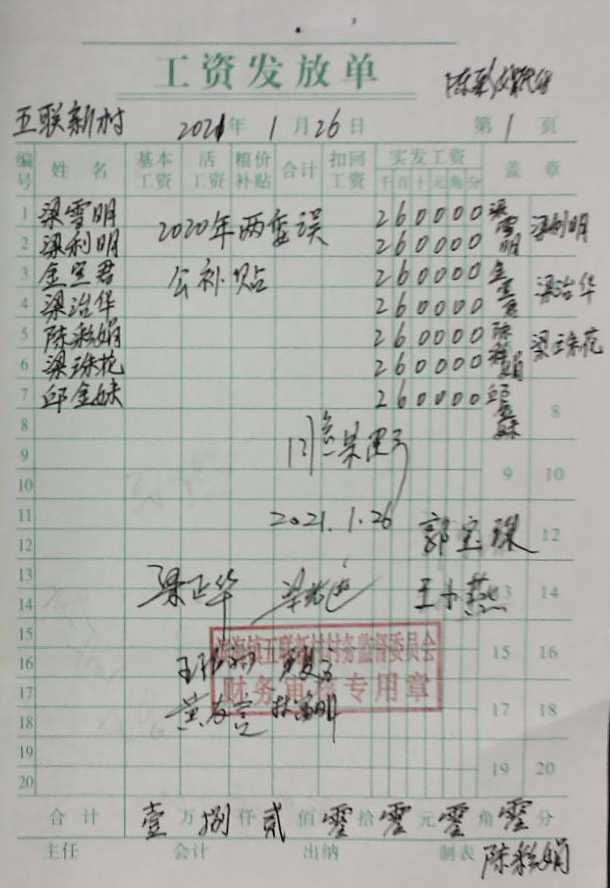 工资发放单
五联新村 2021年 1月26日 第1页
编号 姓名 基本工资 活工资 粮价补贴 合计 扣回工资 实发工资 千百十元角分 盖章
1 梁雪明 2020年两委误 260000 梁雪明
2 梁利明 260000 梁利明
3 金宝君 公补贴 260000 金宝君
4 梁治华 260000 梁治华
5 陈彩娟 260000 陈彩娟
6 梁珠花 260000 梁珠花
7 邱金妹 260000 邱金妹
8 8
9 同意 9
10 10
11 2021.1.26
12 郭宝珠 12
13 梁正华 王小燕 13
14 14
15 村务监督委员会 15
16 16
17 财务审核专用章 17
18 18
19 19
20 20
合计 壹万捌仟贰佰零拾零元零角零分
主任 会计 出纳 制表 陈彩娟